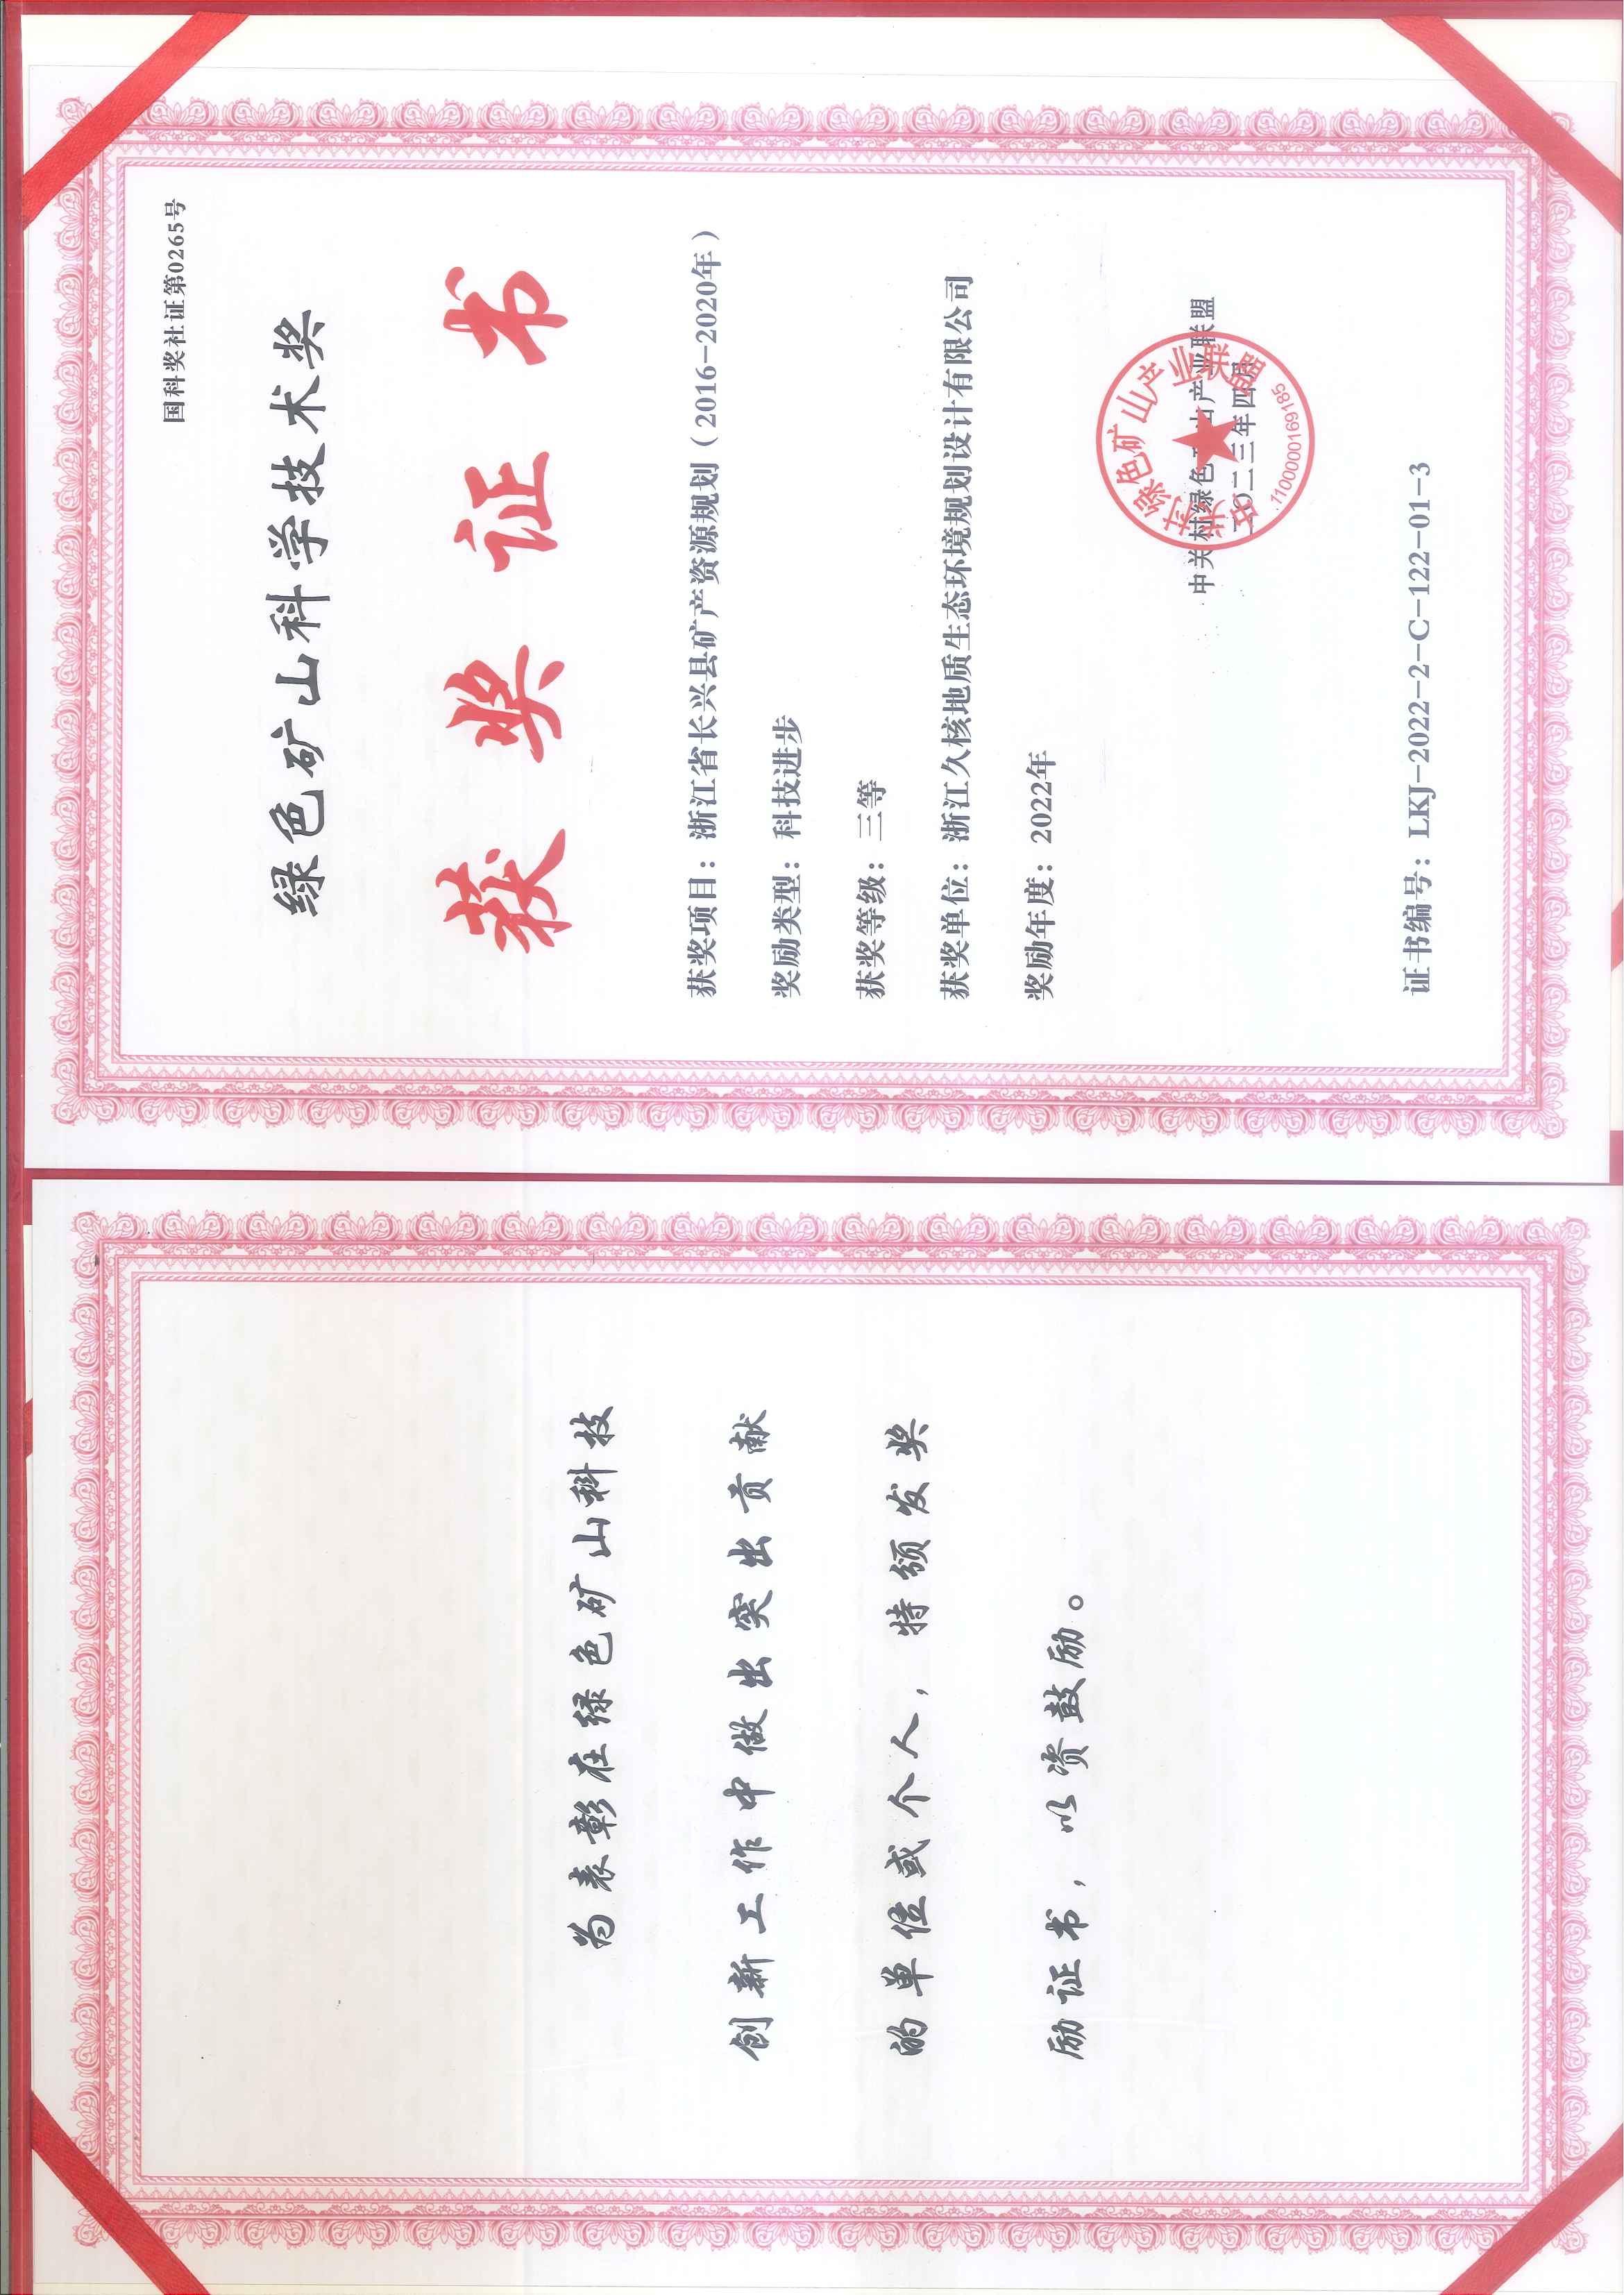 为表彰在绿色矿山科技
创新工作中做出突出贡献
的单位或个人，特颁发奖
励证书，以资鼓励。
国科奖社证第0265号
绿色矿山科学技术奖
获奖证书
获奖项目：浙江省长兴县矿产资源规划（2016-2020年）
奖励类型：科技进步
获奖等级：三等
获奖单位：浙江久核地质生态环境规划设计有限公司
奖励年度：2022年
中关村绿色矿山产业联盟
二〇二三年四月
中关村绿色矿山产业联盟
1100000169185
证书编号：LKJ-2022-2-C-122-01-3